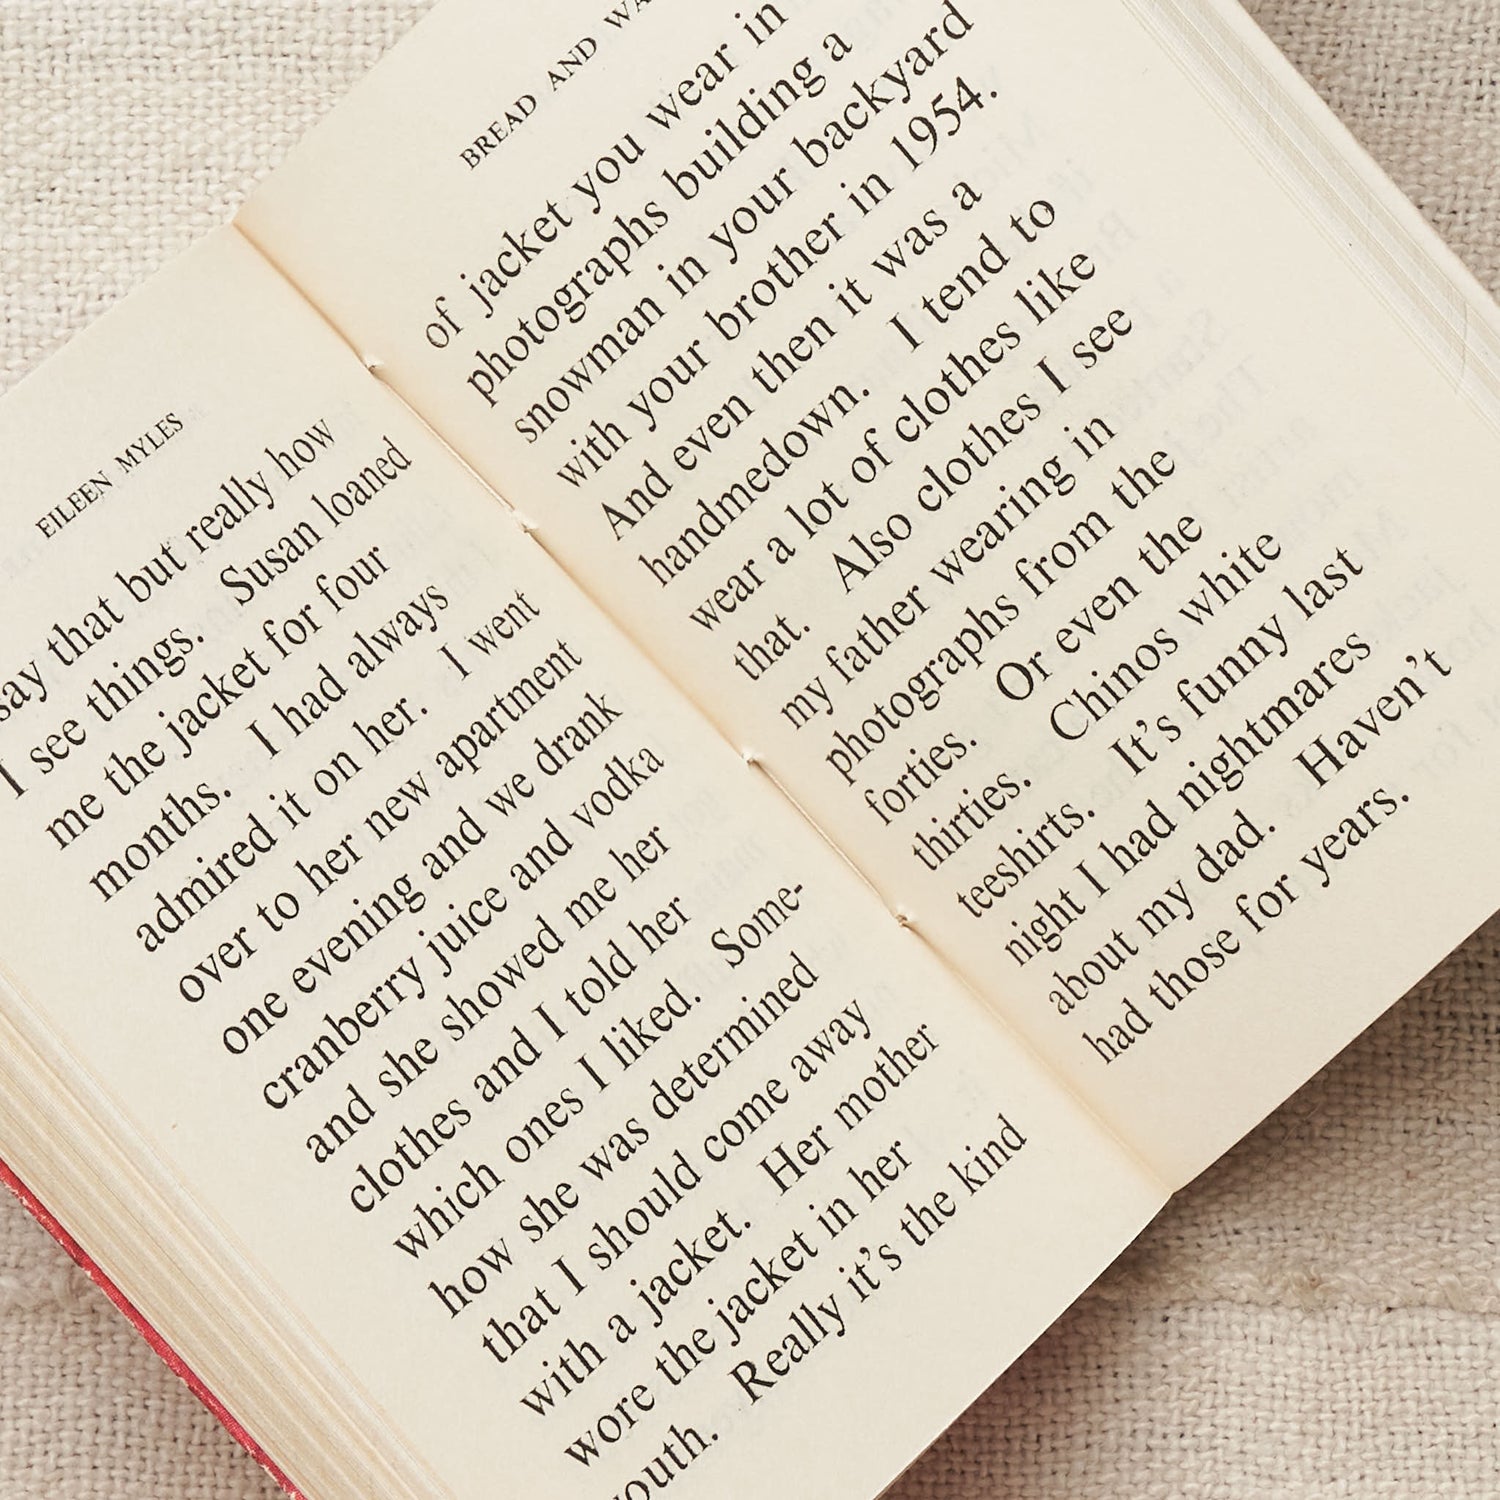 EILEEN MYLES
say that but really how
I see things. Susan loaned
me the jacket for four
months. I had always
admired it on her. I went
over to her new apartment
one evening and we drank
cranberry juice and vodka
and she showed me her
clothes and I told her
which ones I liked. Some-
how she was determined
that I should come away
with a jacket. Her mother
wore the jacket in her
youth. Really it's the kind
BREAD AND
of jacket you wear in
photographs building a
snowman in your backyard
with your brother in 1954.
And even then it was a
handmedown. I tend to
wear a lot of clothes like
that. Also clothes I see
my father wearing in
photographs from the
forties. Or even the
thirties. Chinos white
teeshirts. It's funny last
night I had nightmares
about my dad. Haven't
had those for years.